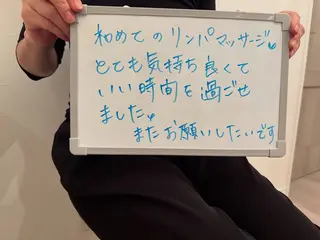 初めてのリンパマッサージ。
とても気持ち良くて
いい時間を過ごせ
ました。
またお願いしたいです